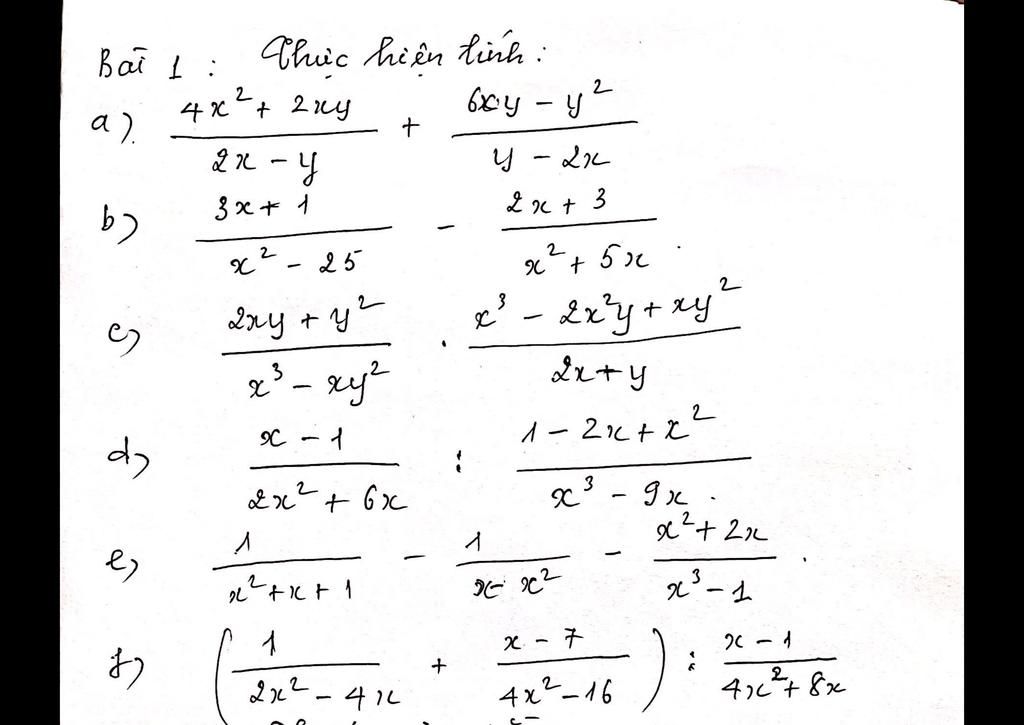 Bài 1 : Thực hiện tính :
a) (4x² + 2xy)/(2x - y) + (6xy - y²)/(y - 2x)
b) (3x + 1)/(x² - 25) - (2x + 3)/(x² + 5x)
c) (2xy + y²)/(x³ - xy²) . (x³ - 2x²y + xy²)/(2x + y)
d) (x - 1)/(2x² + 6x) : (1 - 2x + x²)/(x³ - 9x)
e) 1/(x² + x + 1) - 1/(x - x²) - (x² + 2x)/(x³ - 1) .
f) (1/(2x² - 4x) + (x - 7)/(4x² - 16)) : (x - 1)/(4x² + 8x)